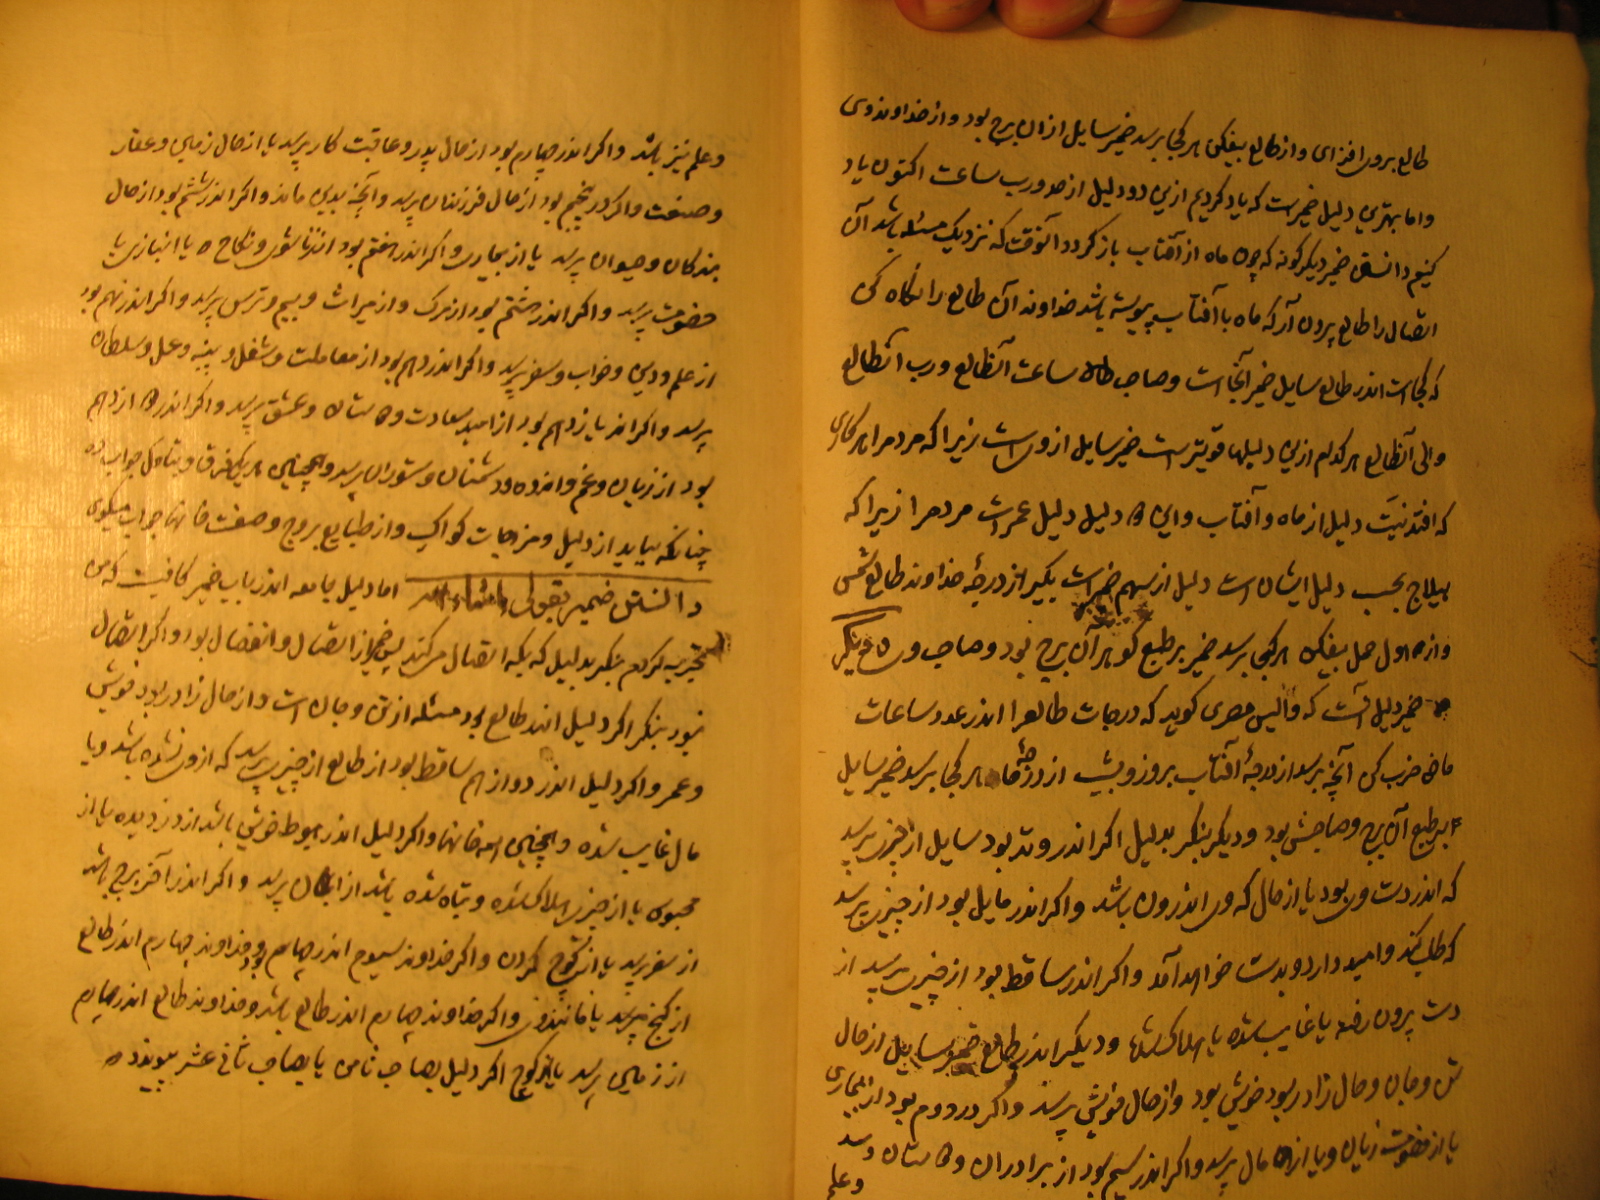 طالع برون افزای و از طالع بیفکن هر کجا برسد ضمیر سایل از ان برج بود و از خداوند وی
و اما بهترین دلیل ضمیرست که یاد کردیم ازین دو دلیل از صد و رب ساعت اکنون یاد
کنیم دانستن ضمیر دیگر کونه که چون ماه از آفتاب باز کردد آنوقت که نزدیک مسئله باشد آن
اتصال را طالع پردن آر که ماه با آفتاب پیوسته باشد خداوند آن طالع را نگاه کن
که کجاست اندر طالع سایل ضمیر آنجاست و صاحب ساعت آنطالع و رب آنطالع
و الی آنطالع هر کدام ازین دلیلها قویترست ضمیر سایل ازوست زیرا که مردم را هر کاری
که افتد نیت دلیل از ماه و آفتاب و این دلیل دلیل عمرست مردم را زیرا که
هیلاج بحسب دلیل ایشان است دلیل از سهم ضمیرست بگیر از درجهٔ خداوند طالع تا شمس
و از اول حمل بیفکن هر کجا برسد ضمیر بر طبع کوهر آن برج بود و صاحب وی نوع دیگر
ضمیر دلیل آنست که والیس مصری کوید که درجات طالع را اندر عدد ساعات
ماضی ضرب کن آنچه برسد از درجهٔ آفتاب بروز و بشب از درجهٔ ماه هر کجا برسد ضمیر سایل
بر طبع آن برج و صاحبش بود و دیگر بنگر بدلیل اگر اندر وتد بود سایل از چیزی پرسد
که اندر دست وی بود یا از حال که وی اندرون باشد و اکر اندر مایل بود از چیزی پرسد
که طلب کند و امید دارد و بدست خواهد آمد و اکر اندر ساقط بود از چیزی پرسد از
دست برون رفته یا غایب شده یا هلاک شده و دیگر اندر طالع ضمیر سایل از حال
تن و جان و حال زاد و بود خویش بود و از حال خویش پرسد و اکر در دوم بود از بیماری
یا از خصومت زنان و یا از مال پرسد و اکر اندر سیم بود از برادران و دوستان و سد
و علم
و علم نیز باشد و اکر اندر چهارم بود از حال پدر و عاقبت کار پرسد یا از حال زمین و عقار
و صنعت و اکر در پنجم بود از حال فرزندان پرسد و آنچه بدین ماند و اکر اندر ششم بود از حال
بندکان و حیوان پرسد یا از بیماری و اکر اندر هفتم بود از زناشوی و نکاح یا انبازی یا
خصومت پرسد و اکر اندر هشتم بود از مرک و از میراث و بیم و ترس پرسد و اکر اندر نهم بود
از علم و دین و خواب و سفر پرسد و اکر اندر دهم بود از معاملت و شغل و پیشه و عمل و سلطان
پرسد و اکر اندر یازدهم بود از امید و سعادت و دوستان و عشق پرسد و اکر اندر دوازدهم
بود از زیان و غم و اندوه و دشمنان و ستوران پرسد و همچنین هر یک فرق و بتامل جواب ده
چنانکه بیاید از دلیل و مزاجات کواکب و از طبایع بروج و صفت خانها جواب میکوی
دانستن ضمیر بقول ماشاء الله اما دلیل جامعه اندر باب ضمیر کافیست که من
تجربه کردم بنکر بدلیل که بکه اتصال میکند پس ضمیر از اتصال و انفصال بود و اکر اتصال
نبود بنکر اکر دلیل اندر طالع بود مسئله از تن و جان است و از حال زاد و بود خویش
و عمر و اکر دلیل اندر دوازدهم ساقط بود از طالع از چیزی پرسد که از وی شده باشد و یا
مال غایب شده و همچنین همه خانها و اکر دلیل اندر هبوط خویش باشد از دزدیده یا از
محبوس یا از چیزی هلاک شده و تباه شده باشد از ان پرسد و اکر اندر آخر برج باشد
از سفر پرسد یا از تحویل کردن و اکر خداوند سیوم اندر چهارم بود و خداوند چهارم اندر طالع
از کنج پرسد یا مانند وی و اکر خداوند چهارم اندر طالع باشد و خداوند طالع اندر چهارم
از زمین پرسد یا از کنج اکر دلیل بصاحب ثامن یا بصاحب ثانی عشر پیوندد